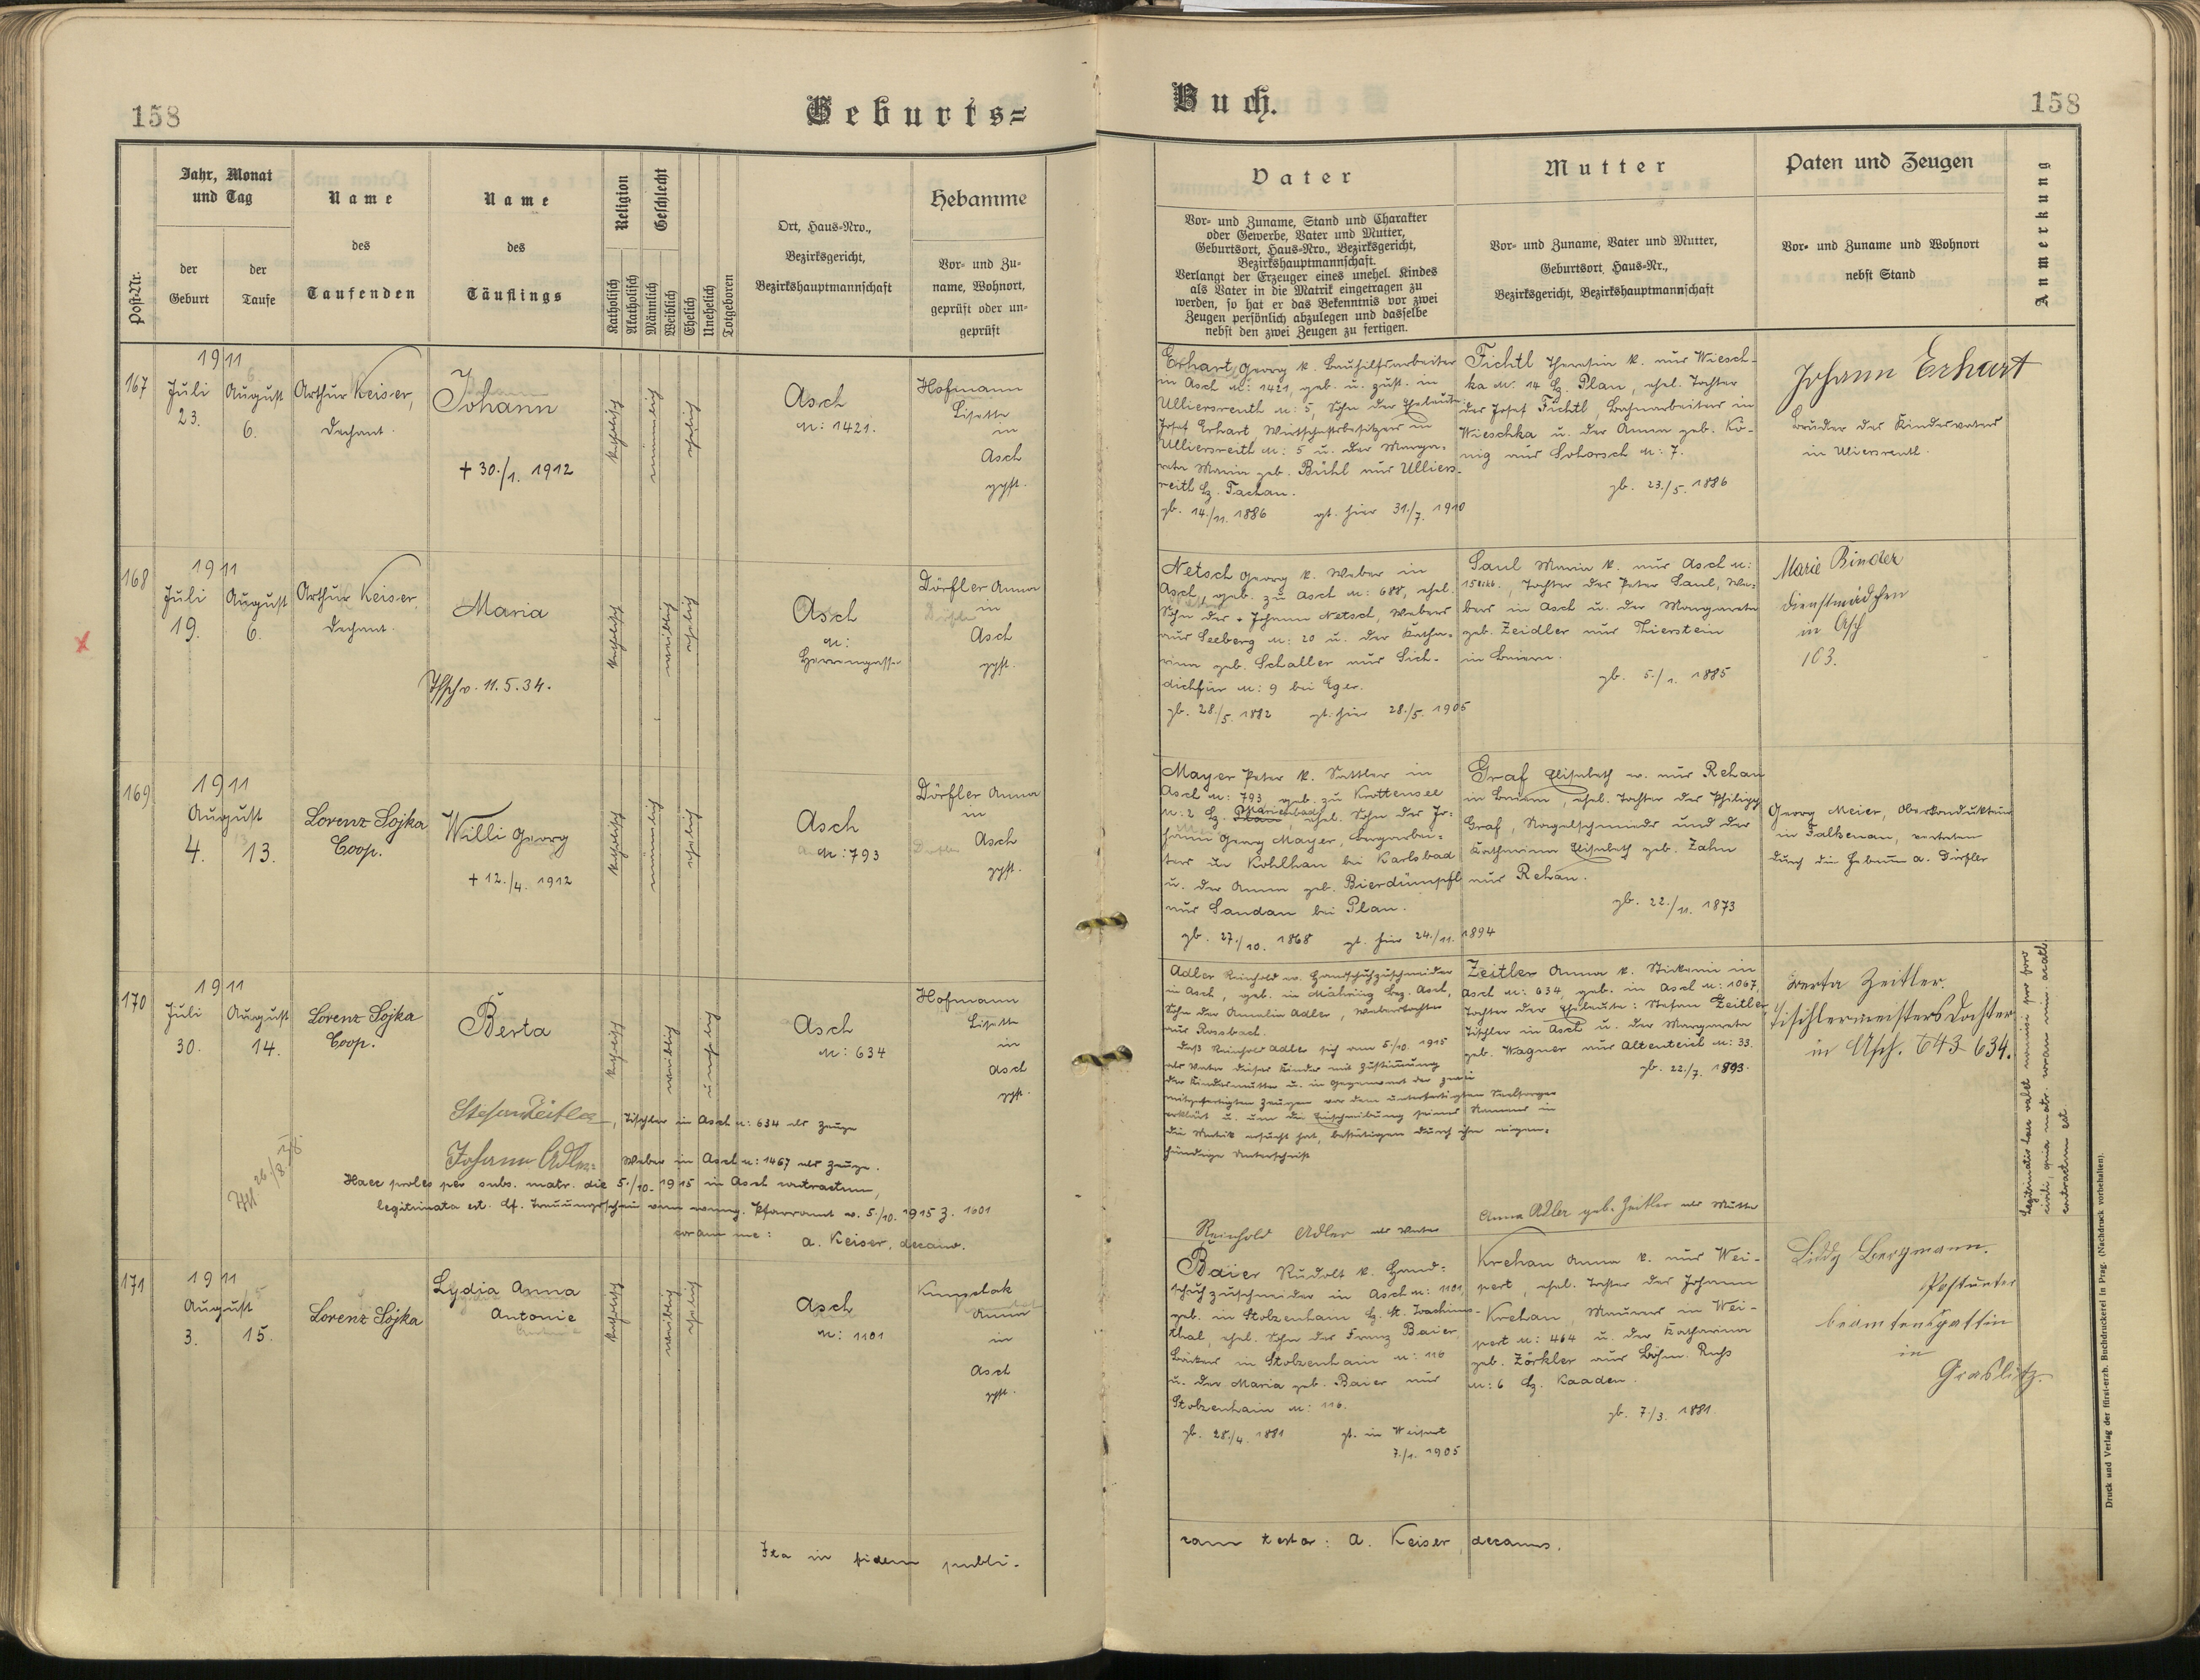 158
Geburts=
Jahr, Monat
und Tag
Name
Name
Religion
Geschlecht
Hebamme
des
des
Ort, Haus=Nro.,
Bezirksgericht,
Bezirkshauptmannschaft
Post=Nr.
der
Geburt
der
Taufe
Taufenden
Täuflings
Katholisch
Akatholisch
Männlich
Weiblich
Ehelich
Unehelich
Totgeboren
Vor= und Zu=
name, Wohnort,
geprüft oder un=
geprüft
167
1911
Juli
23.
August
6.
Arthur Keiser,
Dechant.
Johann
+ 30./1. 1912
katholisch
männlich
ehelich
Asch
N: 1421.
Hofmann
Lisette
in
Asch
gpft.
168
1911
Juli
19.
August
6.
Arthur Keiser,
Dechant.
Maria
11.5.34.
katholisch
weiblich
ehelich
Asch
N:
Herrengasse
Dörfler Anna
in
Asch
gpft.
169
1911
August
4. 13.
Lorenz Sojka
Coop.
Willi Georg
+ 12./4. 1912
katholisch
männlich
ehelich
Asch
N: 793
Dörfler Anna
in
Asch
gpft.
170
1911
Juli
30.
August
14.
Lorenz Sojka
Coop.
Berta
katholisch
weiblich
unehelich
Asch
N: 634
Hofmann
Lisette
in
Asch
gpft.
Stefan Zeitler, Tischler in Asch N: 634 als Zeuge
Johann Adler Weber in Asch N: 1467 als Zeuge.
Haec proles per subs. matr. die 5./10. 1915 in Asch contractum,
legitimata est. cf. Trauungsschein vom evang. Pfarramt v. 5./10. 1915 Z. 1601
coram me: A. Keiser, decanus.
171
1911
August
3. 15.
Lorenz Sojka
Lydia Anna
Antonie
katholisch
weiblich
ehelich
Asch
N: 1101
Anna
in
Asch
gpft.
Ita in fidem publi-
Buch.
158
Vater
Mutter
Paten und Zeugen
Anmerkung
Vor= und Zuname, Stand und Charakter
oder Gewerbe, Vater und Mutter,
Geburtsort, Haus=Nro., Bezirksgericht,
Bezirkshauptmannschaft.
Verlangt der Erzeuger eines unehel. Kindes
als Vater in die Matrik eingetragen zu
werden, so hat er das Bekenntnis vor zwei
Zeugen persönlich abzulegen und dasselbe
nebst den zwei Zeugen zu fertigen.
Vor= und Zuname, Vater und Mutter,
Geburtsort, Haus=Nr.,
Bezirksgericht, Bezirkshauptmannschaft
Vor= und Zuname und Wohnort
nebst Stand
Erhart, Georg k. Bauhilfsarbeiter
in Asch N: 1421, geb. u. zust. in
Ulliersreuth N: 5, Sohn der Eheleute
Josef Erhart Wirtschaftsbesitzers in
Ulliersreith N: 5 u. der Marga=
reta Maria geb. Bühl aus Ulliers-
reith Bz. Tachau.
gb. 14./11. 1886 gt. hier 31./7. 1910
Fichtl Theresia k. aus Wiesch-
ka N: 14 Bz. Plan, ehel. Tochter
des Josef Fichtl, Bahnarbeiters in
Wieschka u. der Anna geb. Kö-
nig aus Lohorsch N: 7.
gb. 23./5. 1886
Johann Erhart
Bruder des Kindesvaters
in Uliersreuth.
Netsch Georg k. Weber in
Asch, geb. zu Asch N: 688, ehel.
Sohn des + Johann Netsch, Webers
aus Seeberg N: 20 u. der Katha=
rina geb. Schaller aus Sich-
dichfür N: 9 bei Eger.
gb. 28./5. 1882 gt. hier 28./5. 1905
Saul Maria k. aus Asch N:
Tochter des Peter Saul, We-
bers in Asch u. der Margareta
geb. Zeidler aus Thierstein
in Baiern.
gb. 5./1. 1885
Marie Binder
Dienstmädchen
in Asch
103.
Mayer Peter k. Sattler in
Asch N: 793, geb. zu Krottensee
N: 2 Bz. Marienbad, ehel. Sohn des Jo=
hann Georg Mayer, Bergarbei=
ters in Kohlhau bei Karlsbad
u. der Anna geb. Bierdümpfl
aus Sandau bei Plan.
gb. 27./10. 1868 gt. hier 24./11. 1894
Graf Elisabeth ev. aus Rehau
in Baiern, ehel. Tochter des Philipp
Graf, Nagelschmieds und der
Katharina Elisabeth geb. Zahn
aus Rehau.
gb. 22./11. 1873
Georg Meier, Oberkondukteur
in Falkenau, vertreten
durch die Hebamme A. Dörfler
Adler Reinhold ev. Handschuhzuschneider
in Asch, geb. in Mähring Bez. Asch,
Sohn der Amalia Adler, Weberstochter
aus Rossbach.
Daß Reinhold Adler sich am 5./10. 1915
als Vater dieses Kindes mit Zustimmung
der Kindesmutter u. in Gegenwart der zwei
mitgefertigten Zeugen vor dem unterfertigten Seelsorger
erklärt u. um die Einschreibung seines Namens in
die Matrik ersucht hat, bestätigen durch ihre eigen=
händige Unterschrift
Reinhold Adler als Vater
Zeitler Anna k. Stickerin in
Asch N: 634, geb. in Asch N: 1067,
Tochter der Eheleute: Stefan Zeitler
Tischler in Asch u. der Margareta
geb. Wagner aus Altenteich N: 33.
gb. 22./7. 1893.
Anna Adler geb. Zeitler als Mutter
Berta Zeitler.
Tischlermeisters Tochter
in Asch. 643 634.
Legitimatio haec valet nonnisi pro foro
civili, quia matr. coram min. acath.
contractum est
Baier Rudolf k. Hand=
schuhzuschneider in Asch N: 1101,
geb. in Stolzenhain Bz. St. Joachims-
thal, ehel. Sohn des Franz Baier,
Bäckers in Stolzenhain N: 116
u. der Maria geb. Baier aus
Stolzenhain N: 116.
gb. 28./4. 1881 gt. in Weipert
7./1. 1905
Krehan Anna k. aus Wei-
pert, ehel. Tochter des Johann
Krehan, Maurers in Wei-
pert N: 464 u. der Katharina
geb. Zörkler aus Böhm. Rust
N: 6 Bz. Kaaden.
gb. 7./3. 1881.
Liddy Bergmann.
Postunter
beamtensgattin
in
Graslitz.
cam testor: A. Keiser, decanus.
Druck und Verlag der fürst-erzb. Buchdruckerei in Prag. (Nachdruck vorbehalten).